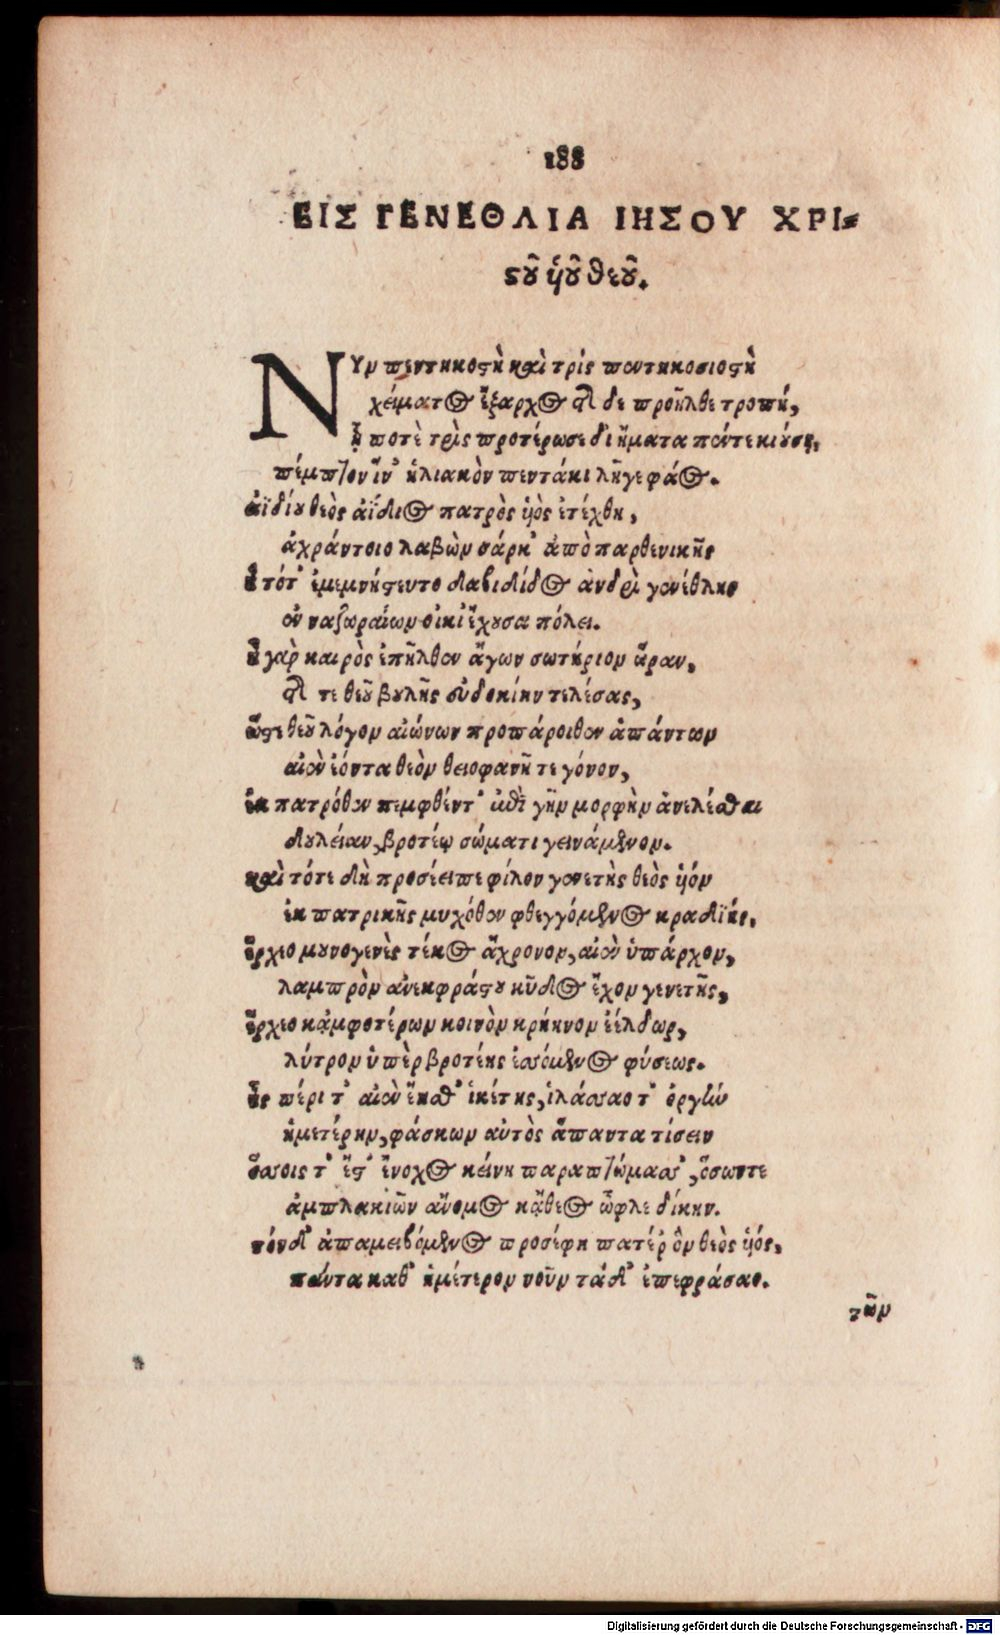 188
ΕΙΣ ΓΕΝΕΘΛΙΑ ΙΗΣΟΥ ΧΡΙ=
ϛοῦ ὑοῦ θεοῦ.
ΝΥν πεντηκοϛὴ καὶ τρὶς πεντηκοσιοϛὴ
χείματος ἔξαρχος τῇ δε προῆλθε τροπή,
ᾗ ποτὲ τρὶς προτέρωσε δι ἤματα πέντε κιούσῃ,
πέμπτον ἵν' ἡλιακὸν πεντάκι λῆγε φάος.
ἀϊδίου θεὸς ἀΐδιος πατρὸς ὑὸς ἐτέχθη,
ἀχράντοιο λαβὼν σάρκ' ἀπὸ παρθενικῆς
ἣ τότ' ἐμεμνήϛευτο δαβιδίδος ἀνδρὶ γενέθλης
ἐν ναζωραίων οἰκί' ἔχουσα πόλει.
ἦ γὰρ καιρὸς ἐπῆλθεν ἄγων σωτήριον ὥραν,
τῇ τε θεοῦ βουλῆς εὐδοκίην τελέσας,
ὥϛε θεοῦ λόγον αἰώνων προπάροιθεν ἁπάντων
αἰὲν ἐόντα θεὸν θειοφανῆ τε γόνον,
ἐκ πατρόθεν πεμφθέντ' ἐπὶ γῆν μορφὴν ἀνελέσθαι
δουλείαν, βροτέῳ σώματι γεινάμενον.
καὶ τότε δὴ προσέειπε φίλον γενετὴς θεὸς ὑόν
ἐκ πατρικῆς μυχόθεν φθεγγόμενος κραδίης,
ἔρχεο μουνογενὲς τέκος ἄχρονον, αἰὲν ὑπάρχον,
λαμπρὸν ἀνεκφράϛου κῦδος ἔχον γενετῆς,
ἔρχεο κᾀμφοτέρων κοινὸν κρήηνον ἐέλδωρ,
λύτρον ὑπὲρ βροτέης ἐσόμενος φύσεως.
ἧς πέρι τ' αἰὲν ἔησθ' ἱκέτης, ἱλάσσαο τ' ὀργὴν
ἡμετέρην, φάσκων αὐτὸς ἅπαντα τίσειν
ὅσσοις τ' ἔϛ' ἔνοχος κείνη παραπτώμασσ', ὅσων τε
ἀμπλακιῶν ἄνομος κᾄθεος ὦφλε δίκην.
τόνδ' ἀπαμειβόμενος προσέφη πατέρ' ὃν θεὸς ὑός,
πάντα καθ' ἡμέτερον νοῦν τάδ' ἐπεφράσαο.
τῶν
Digitalisierung gefördert durch die Deutsche Forschungsgemeinschaft - DFG